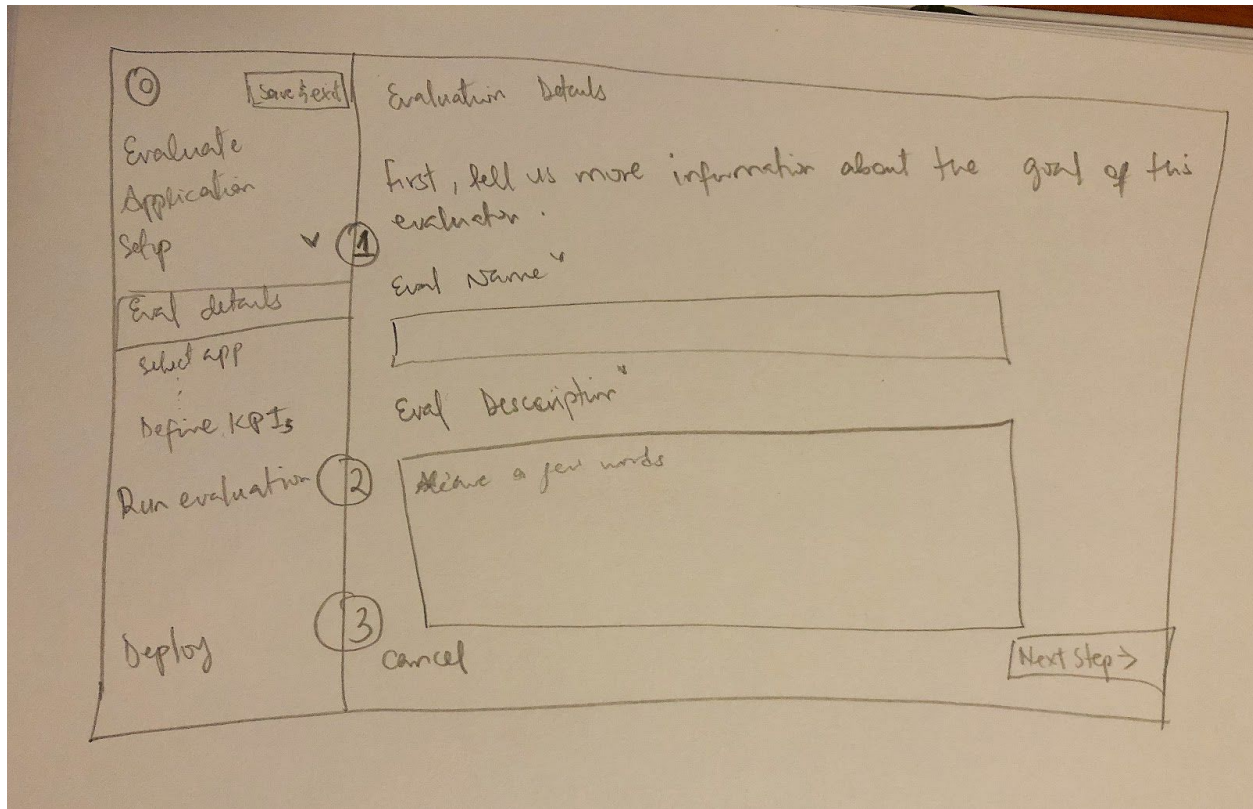 Save & exit
Evaluate
Application
Setup
1
Eval details
select app
Define KPIs
Run evaluation
2
Deploy
3
Evaluation Details
First, tell us more information about the goal of this
evaluator.
Eval Name*
Eval Description*
a few words
Cancel
Next Step →